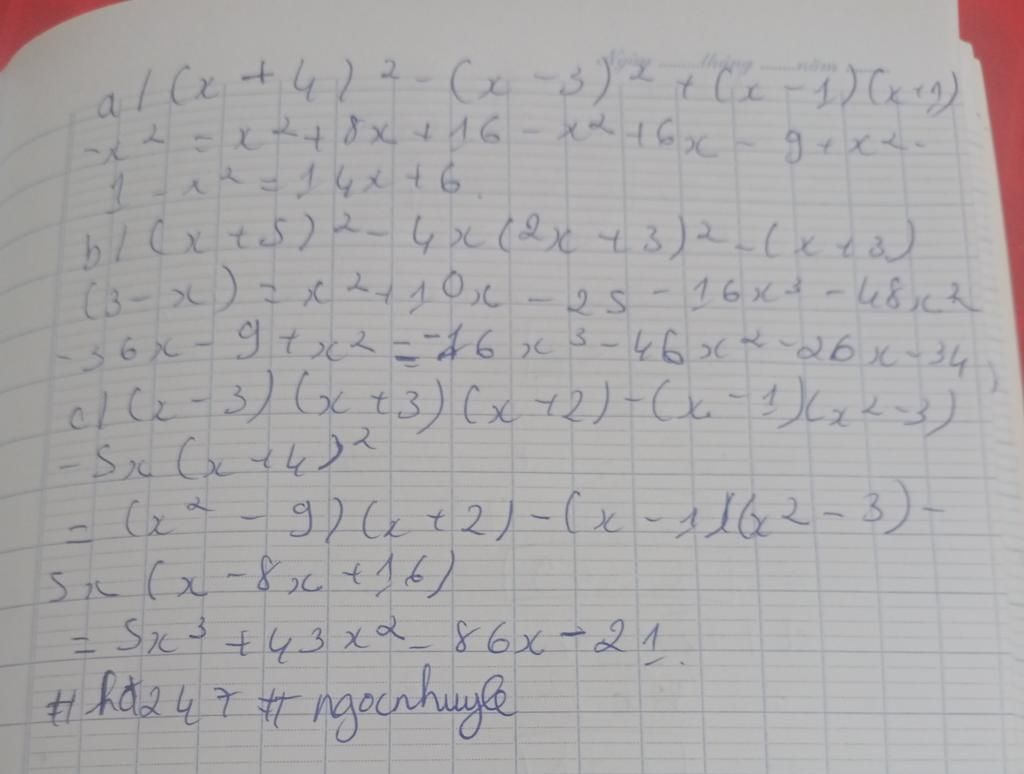 Ngày ........ tháng ........ năm
a/ (x + 4)² - (x - 3)² + (x - 1)(x+1)
-x² = x² + 8x + 16 - x² + 6x - 9 + x² -
1 - x² = 14x + 6.
b/ (x + 5)² - 4x(2x + 3)² - (x + 3)
(3 - x) = x² + 10x - 25 - 16x³ - 48x²
- 36x - 9 + x² = -16x³ - 46x² - 26x - 34
c/ (x - 3)(x + 3)(x + 2) - (x - 1)(x² - 3)
- 5x(x + 4)²
= (x² - 9)(x + 2) - (x - 1)(x² - 3) -
5x (x - 8x + 16)
= 5x³ + 43x² - 86x - 21.
# hđ247 # ngocnhuyle